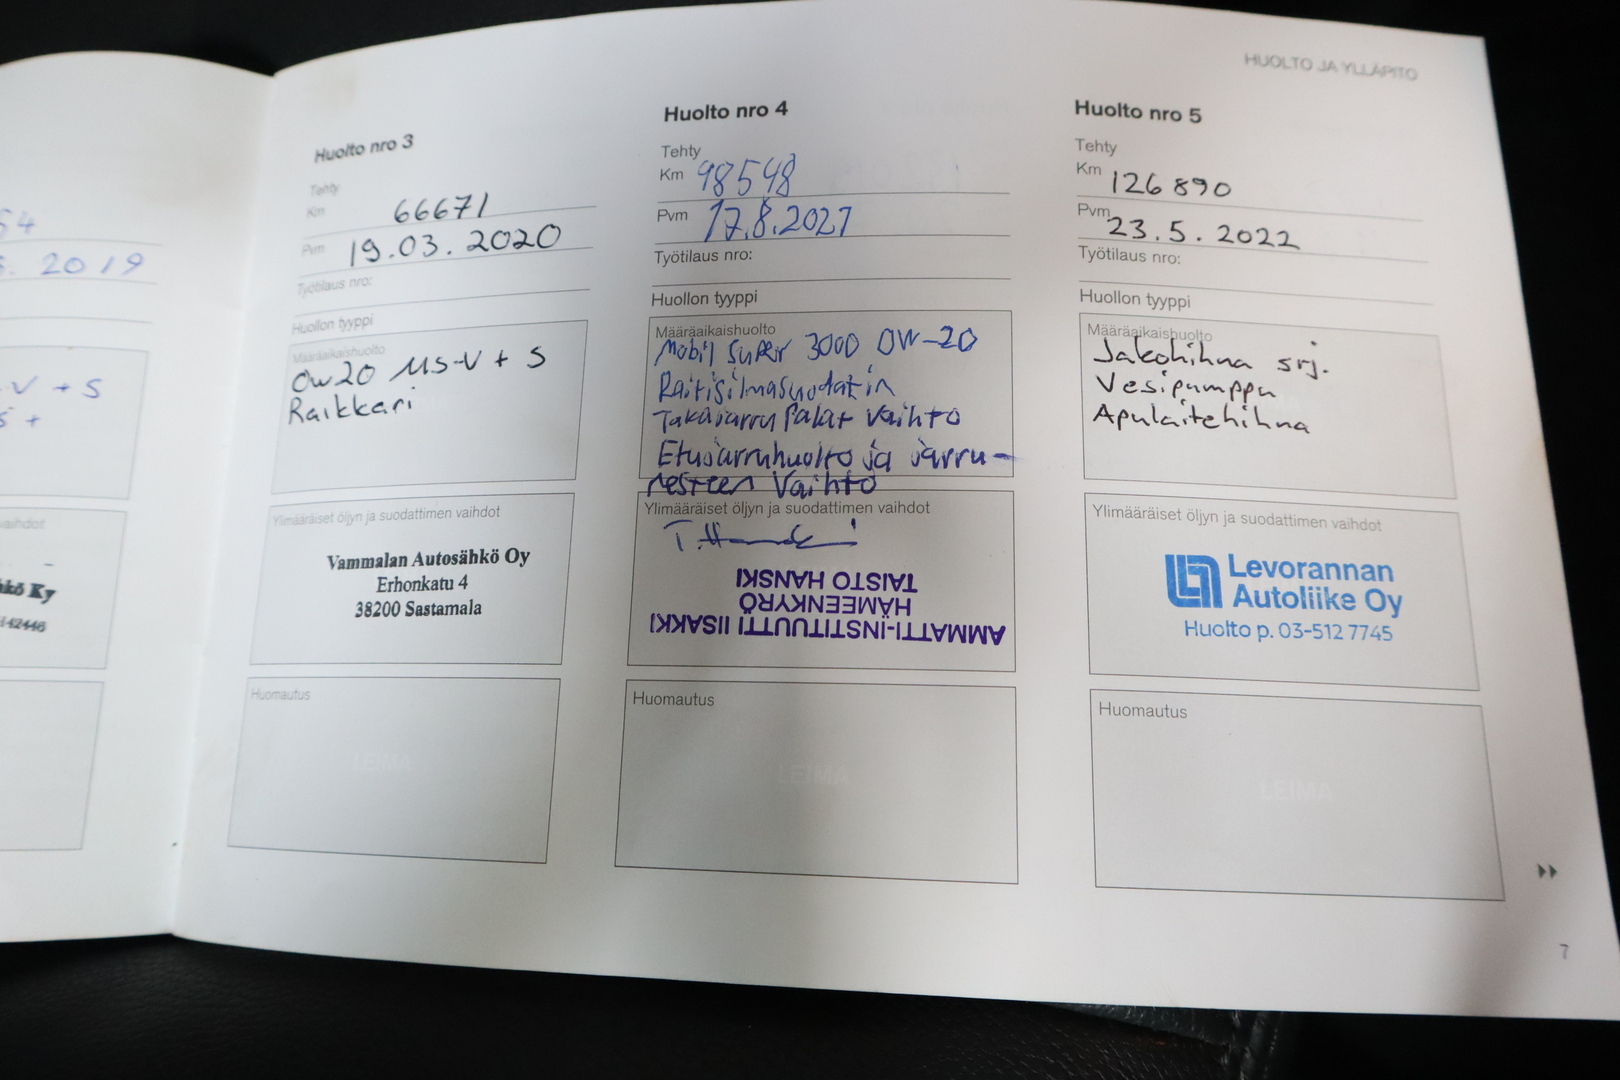 54
. 2019
-V + S
5 +
vaihdot
hkö Ky
42446
HUOLTO JA YLLÄPITO
Huolto nro 3
Tehty
Km 66671
Pvm 19.03.2020
Työtilaus nro:
Huollon tyyppi
Määräaikaishuolto
0w20 MS-V + S
Raikkari
Ylimääräiset öljyn ja suodattimen vaihdot
Vammalan Autosähkö Oy
Erhonkatu 4
38200 Sastamala
Huomautus
LEIMA
Huolto nro 4
Tehty
Km 98548
Pvm 17.8.2021
Työtilaus nro:
Huollon tyyppi
Määräaikaishuolto
Mobil Super 3000 0W-20
Raitisilmasuodatin
Takajarru Palat Vaihto
Etujarruhuolto ja jarru-
nesteen Vaihto
Ylimääräiset öljyn ja suodattimen vaihdot
AMMATTI-INSTITUUTTI IISAKKI
HÄMEENKYRÖ
TAISTO HANSKI
Huomautus
LEIMA
Huolto nro 5
Tehty
Km 126 890
Pvm 23.5.2022
Työtilaus nro:
Huollon tyyppi
Määräaikaishuolto
Jakohihna srj.
Vesipumppu
Apulaitehihna
Ylimääräiset öljyn ja suodattimen vaihdot
Levorannan
Autoliike Oy
Huolto p. 03-512 7745
Huomautus
LEIMA
7